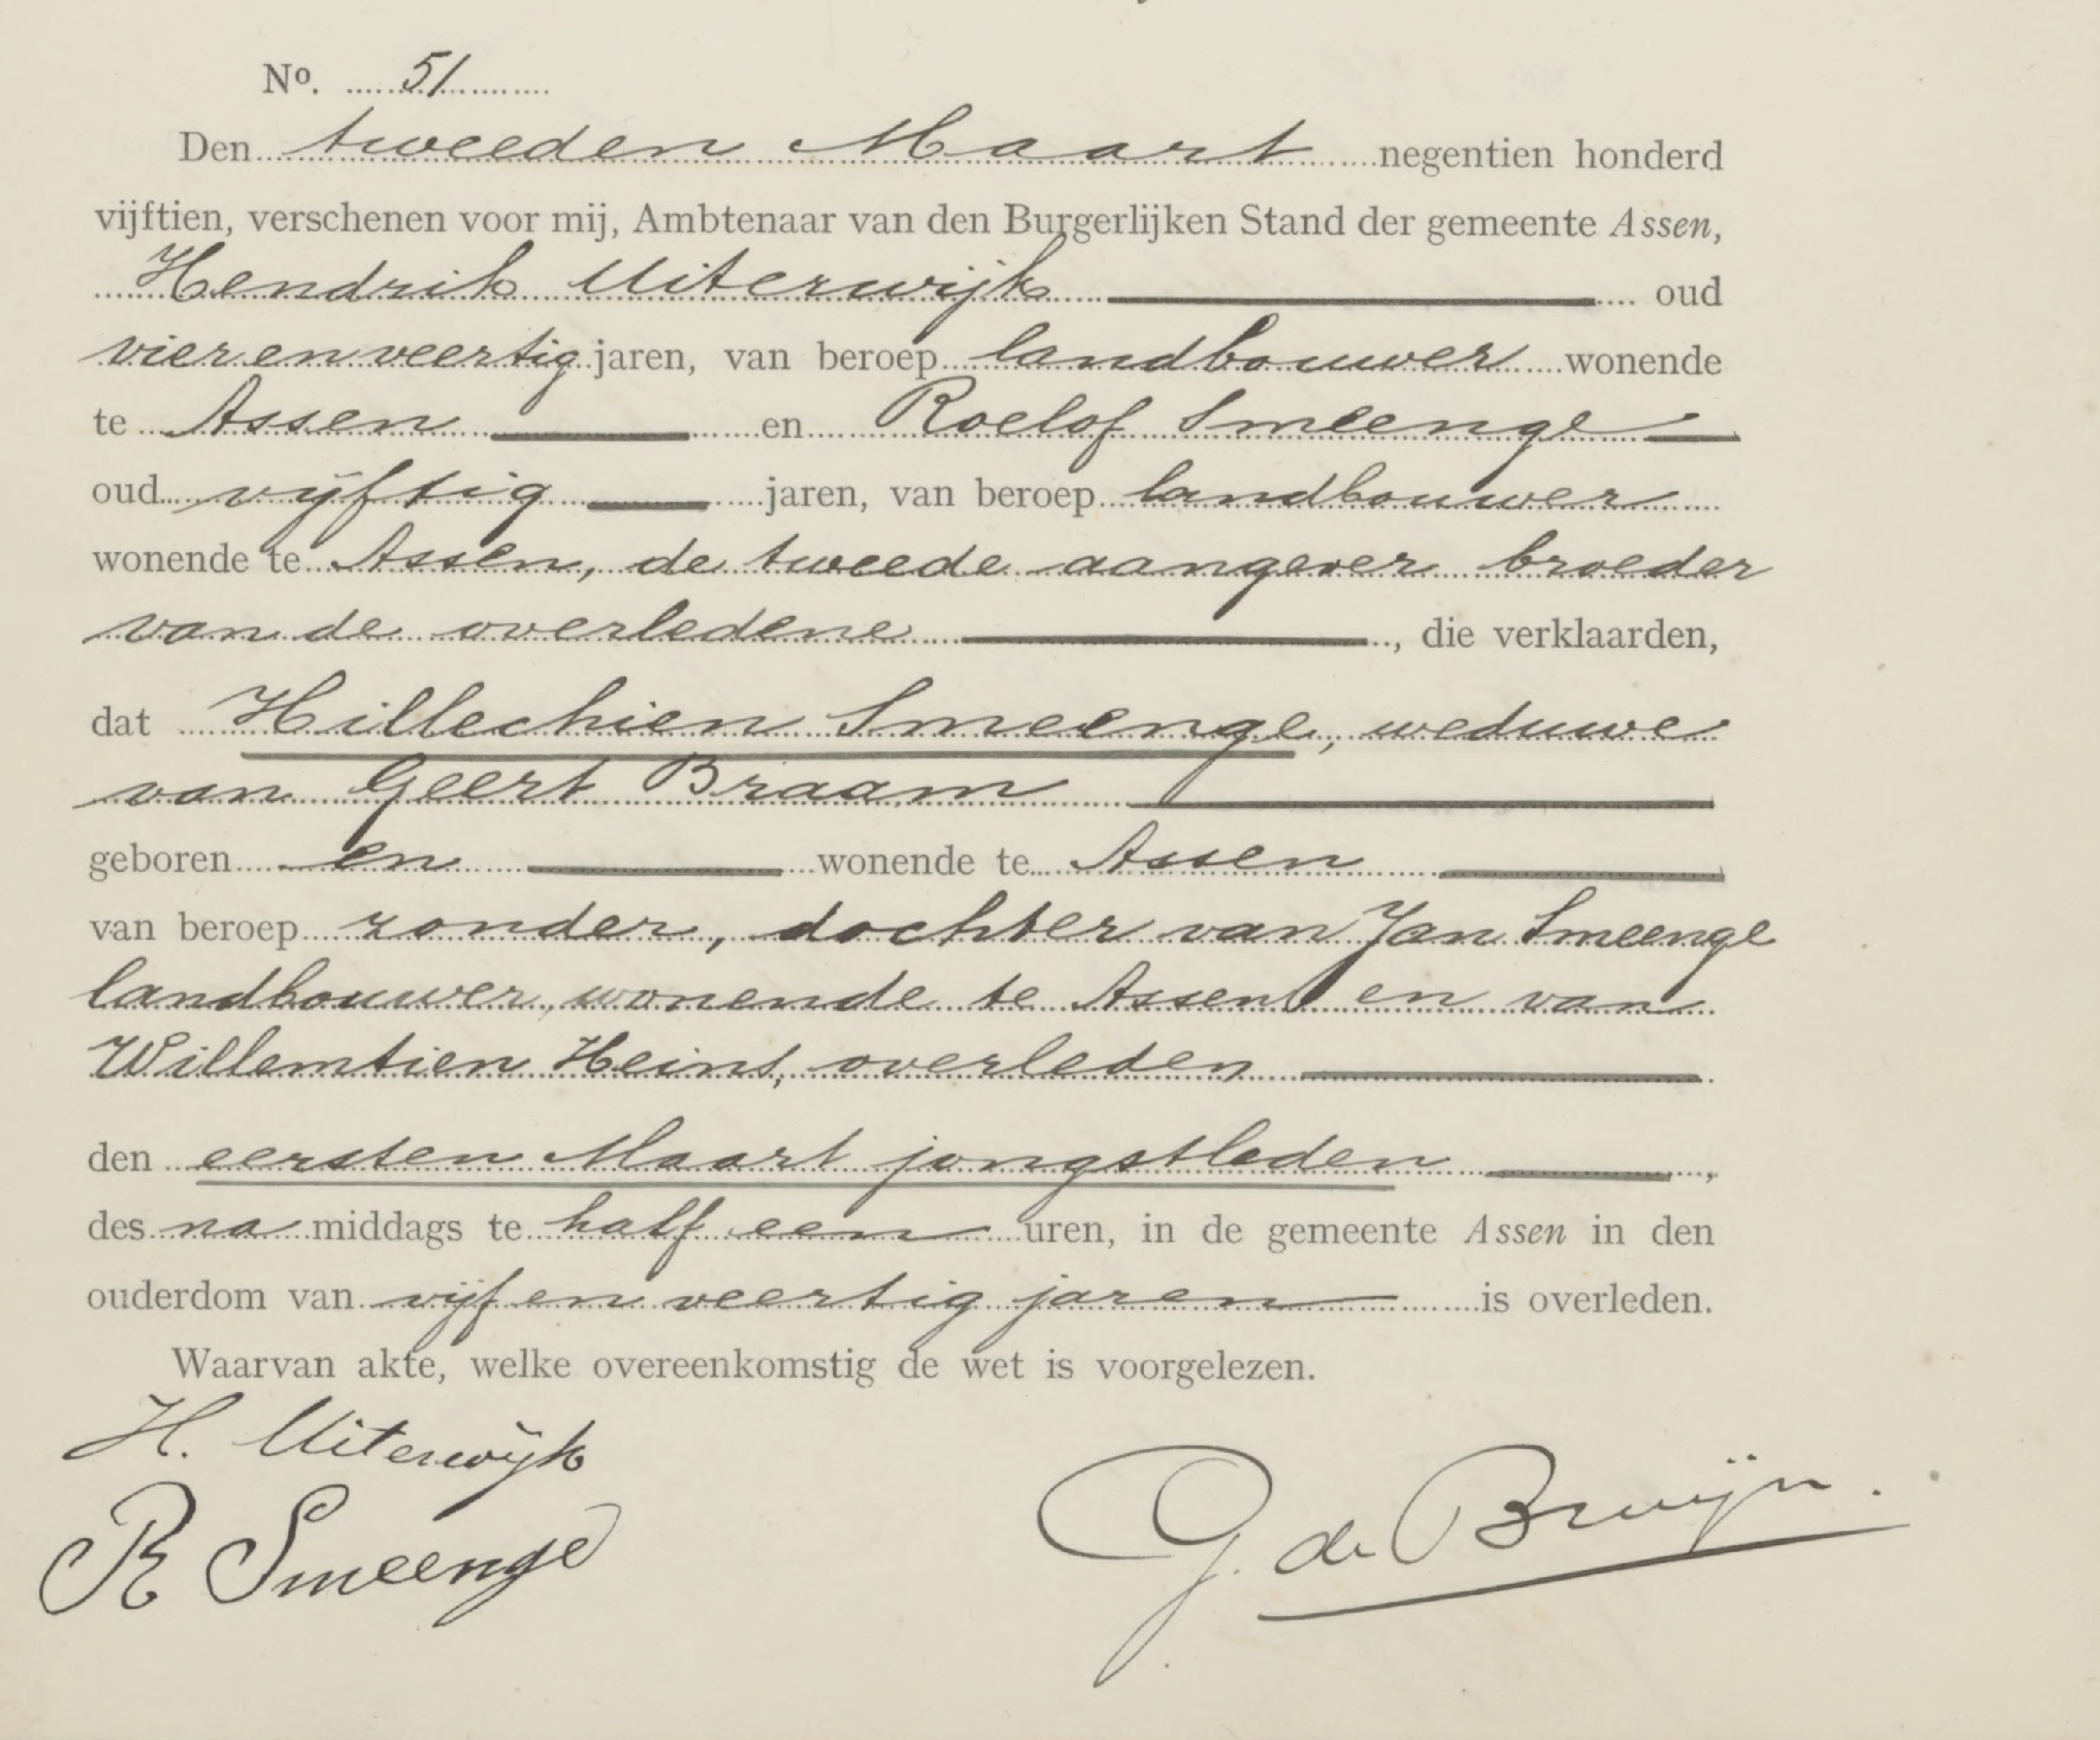 No. 51
Den tweeden Maart negentien honderd
vijftien, verschenen voor mij, Ambtenaar van den Burgerlijken Stand der gemeente Assen,
Hendrik Uiterwijk oud
vier en veertig jaren, van beroep landbouwer wonende
te Assen en Roelof Smeenge
oud vijftig jaren, van beroep landbouwer
wonende te Assen, de tweede aangever broeder
van de overledene, die verklaarden,
dat Hillechien Smeenge, weduwe
van Geert Braam
geboren en wonende te Assen
van beroep zonder, dochter van Jan Smeenge
landbouwer, wonende te Assen en van
Willemtien Heins, overleden
den eersten Maart jongstleden,
des na middags te half een uren, in de gemeente Assen in den
ouderdom van vijf en veertig jaren is overleden.
Waarvan akte, welke overeenkomstig de wet is voorgelezen.
H. Uiterwijk
R Smeenge
G. de Bruijn.